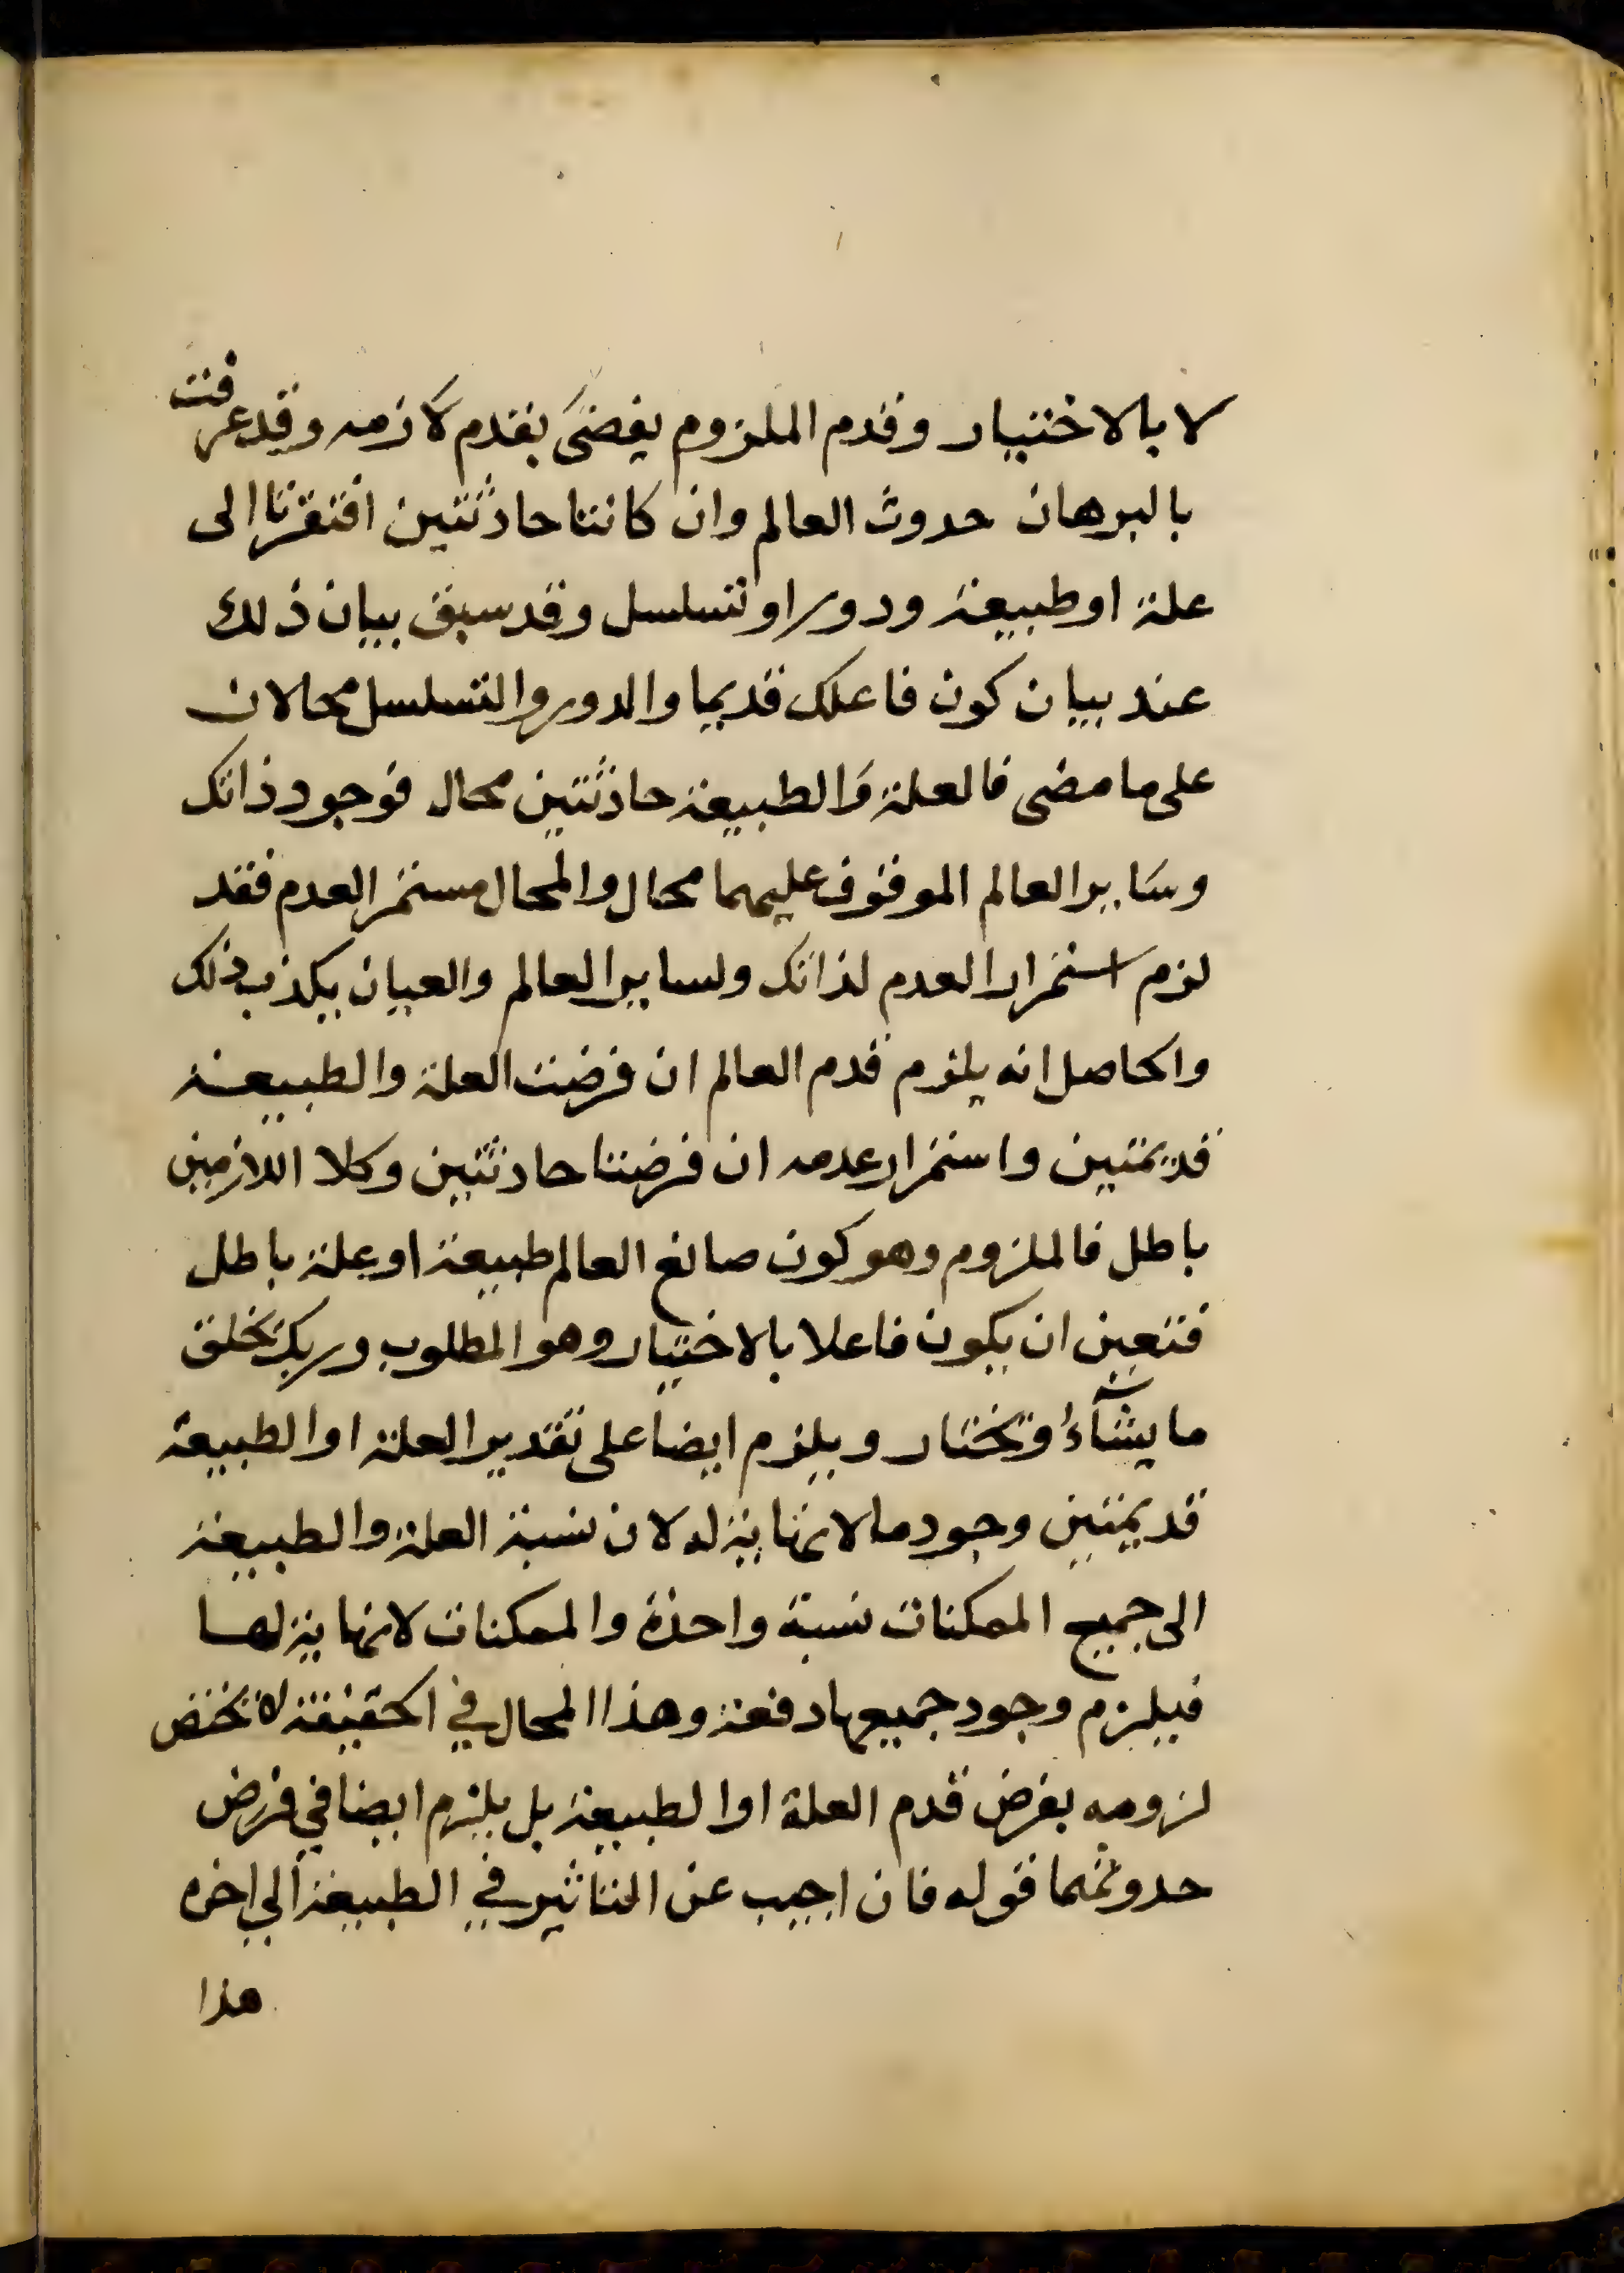 لا بالاختيار وقدم الملزوم يفضى بقدم لازمه وقد عرفت
بالبرهان حدوث العالم وان كانتا حادثتين افتقرتا الى
علة او طبيعة ودورا وتسلسل وقد سبق بيان ذلك
عند بيان كون فاعلك قديما والدور والتسلسل محالان
على ما مضى فالعلة والطبيعة حادثتين محال فوجود ذاتك
وساير العالم الموقوف عليهما محال والمحال مستمر العدم فقد
لزم استمرار العدم لذاتك ولساير العالم والعيان يكذب ذلك
والحاصل انه يلزم قدم العالم ان فرضت العلة والطبيعة
قديمتين واستمرار عدمه ان فرضتا حادثتين وكلا اللازمين
باطل فالملزوم وهو كون صانع العالم طبيعة او علة باطل
فتعين ان يكون فاعلا بالاختيار وهو المطلوب وربك يخلق
ما يشآء ويختار ويلزم ايضا على تقدير العلة او الطبيعة
قديمتين وجود ما لا نهاية له لان نسبة العلة والطبيعة
الى جميع الممكنات نسبة واحدة والممكنات لا نهاية لها
فيلزم وجود جميعها دفعة وهذا المحال في الحقيقة لا تختص
لزومه بفرض قدم العلة او الطبيعة بل يلزم ايضا في فرض
حدوثهما قوله فان اجيب عن التاثير في الطبيعة الي اخره
هذا